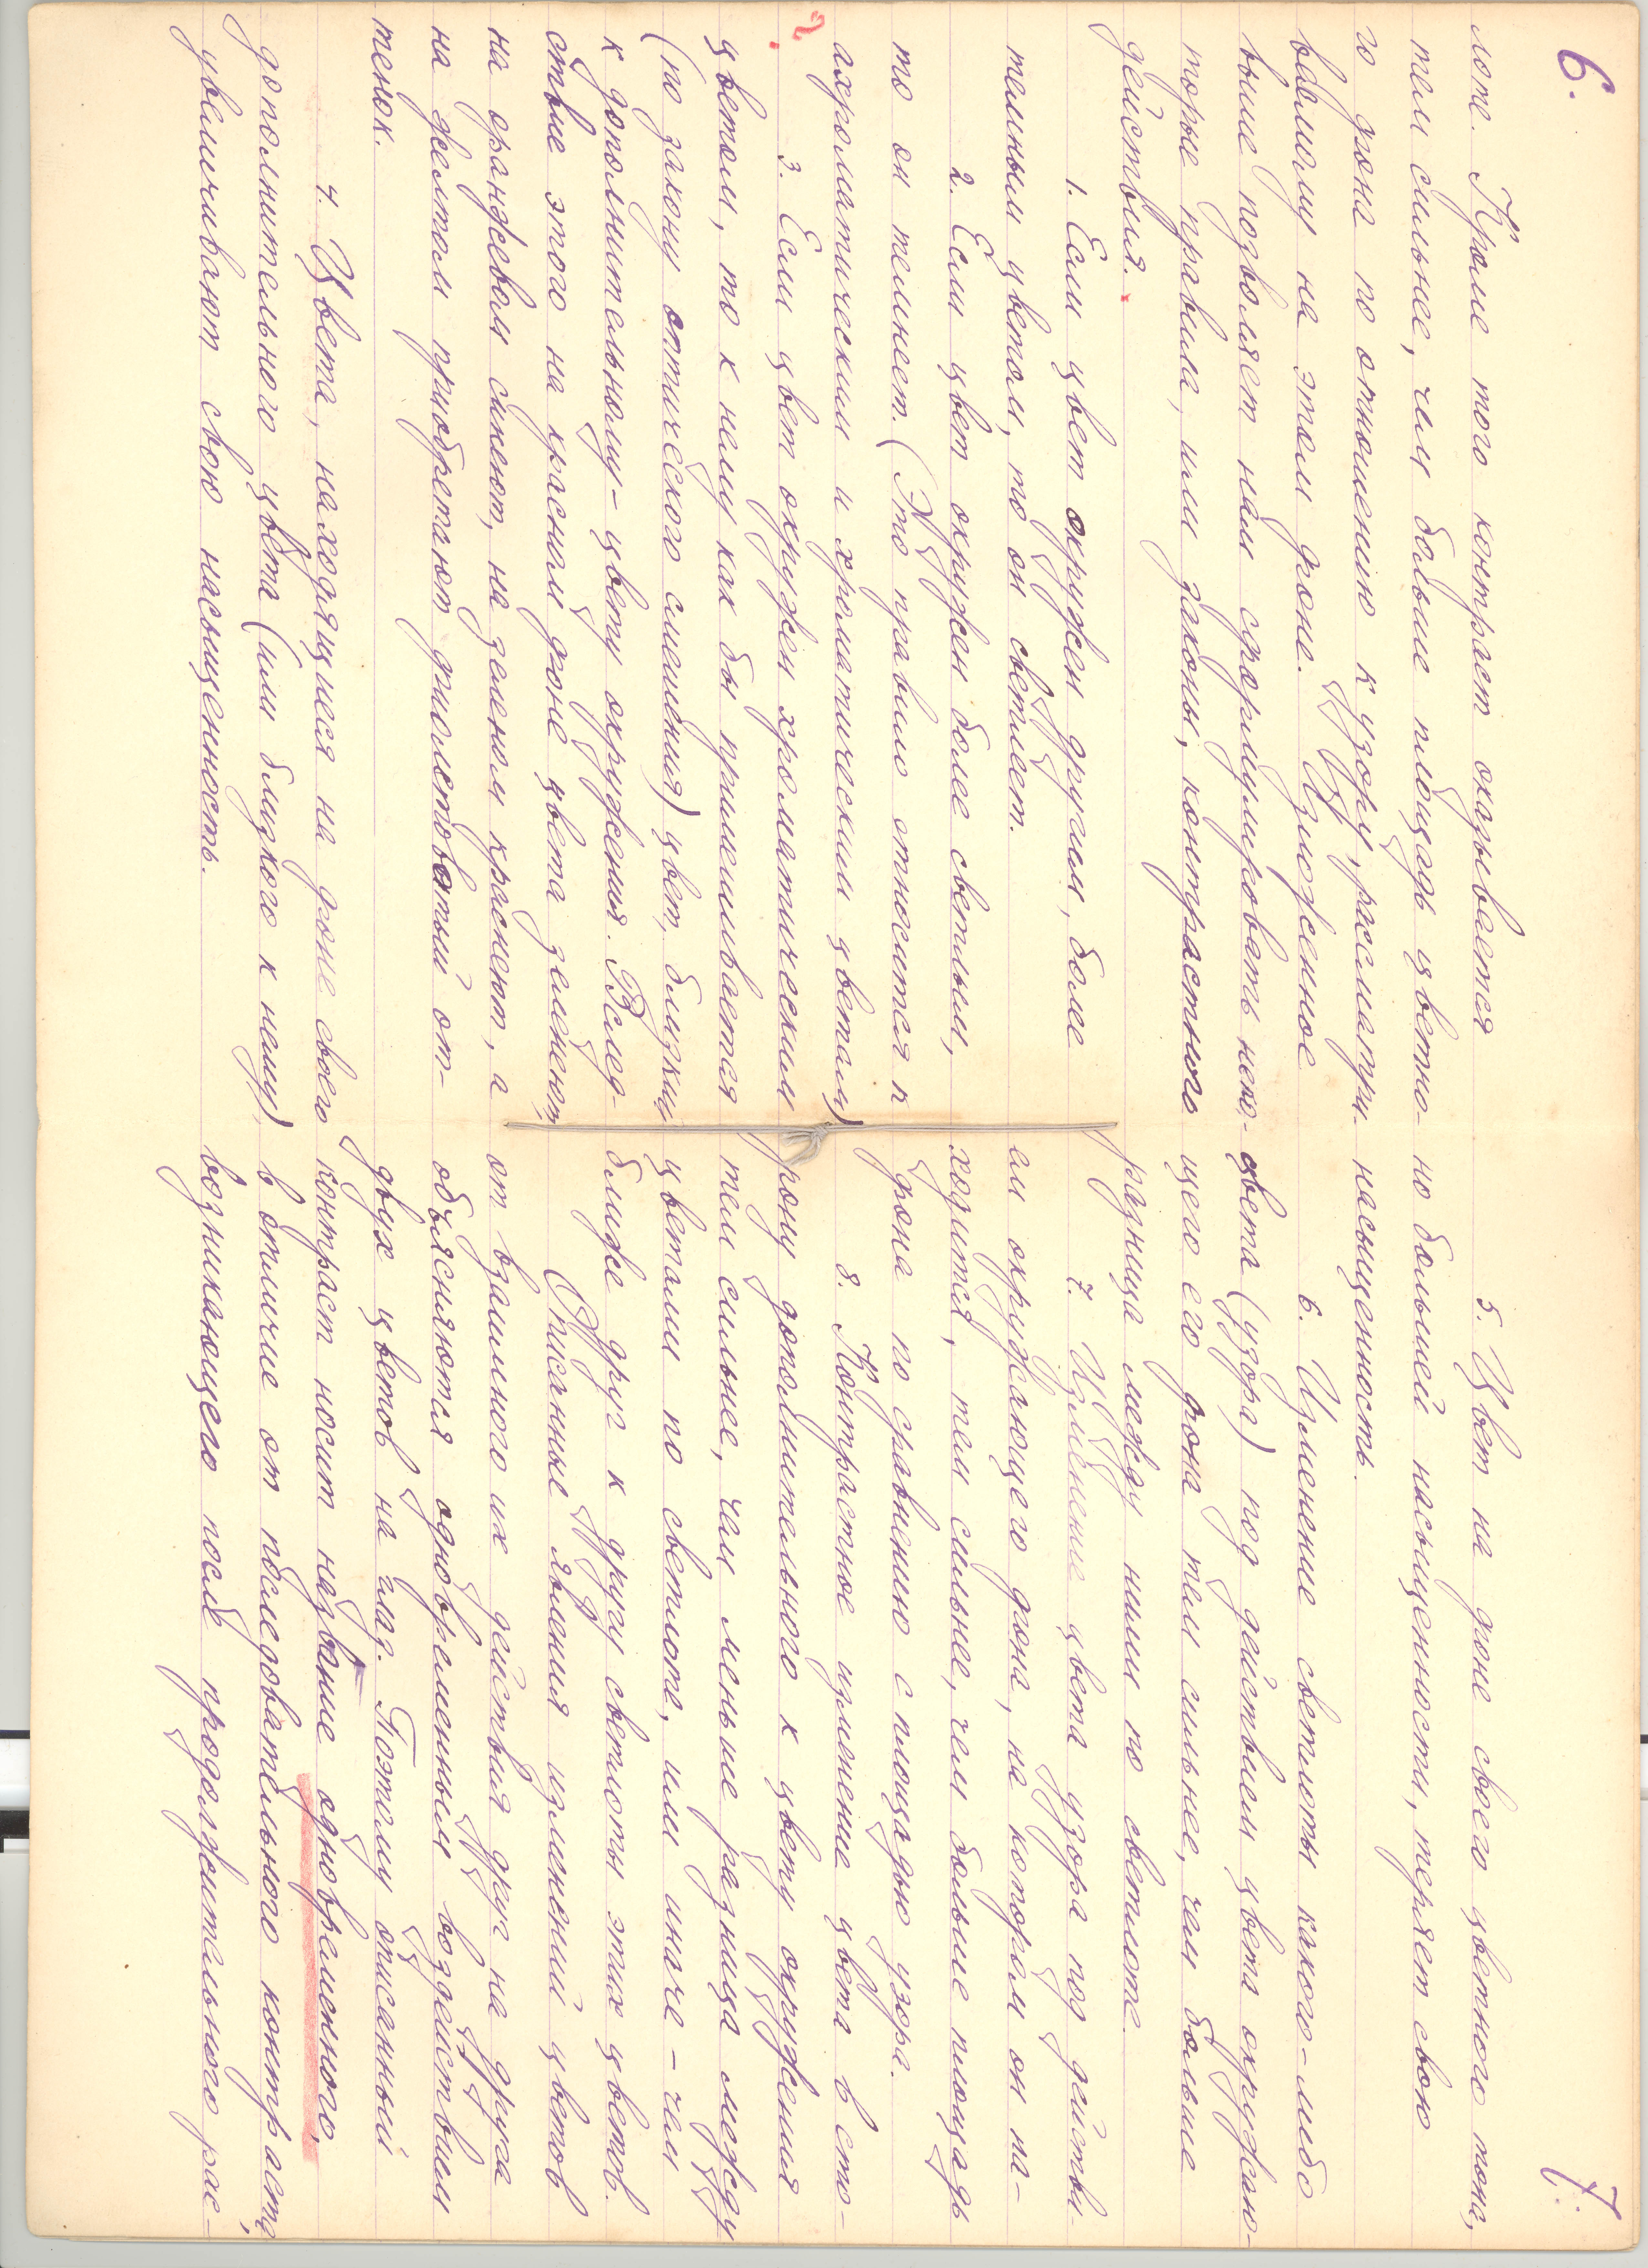 6.
лоте. Кроме того контраст оказывается
тем сильнее, чем больше площадь цветно-
го фона по отношению к узору, рассматри-
ваемому на этом фоне. Изложенное
выше позволяет нам сформулировать неко-
торые правила, или законы, контрастного
действия.
1. Если цвет окружен другим, более
темным цветом, то он светлеет.
2. Если цвет окружен более светлым,
то он темнеет. (Это правило относится к
ахроматическим и хроматическим цветам)
3. Если цвет окружен хроматическим
цветом, то к нему как бы примешивается
(по закону оптического смешения) цвет, близкий
к дополнительному - цвету окружения. Вслед-
ствие этого на красном фоне цвета зеленеют,
на оранжевом синеют, на зеленом краснеют, а
на желтом приобретают фиолетоватый от-
тенок.
4. Цвета, находящиеся на фоне своего
дополнительного цвета (или близкого к нему),
увеличивают свою насыщенность.
7.
5. Цвет на фоне своего цветного тона,
но большей насыщенности, теряет свою
насыщенность.
6. Изменение светлоты какого-либо
цвета (узора) под действием цвета окружаю-
щего его фона тем сильнее, чем больше
разница между ними по светлоте.
7. Изменение цвета узора под действи-
ем окружающего фона, на котором он на-
ходится, тем сильнее, чем больше площадь
фона по сравнению с площадью узора.
8. Контрастное изменение цвета в сто-
рону дополнительного к цвету окружения
тем сильнее, чем меньше разница между
цветами по светлоте, или иначе - чем
ближе друг к другу светлоты этих цветов.
Описанные явления изменений цветов
от взаимного их действия друг на друга
объясняются одновременным воздействием
двух цветов на глаз. Поэтому описанный
контраст носит название одновременного,
в отличие от последовательного контраста,
возникающего после продолжительного рас-